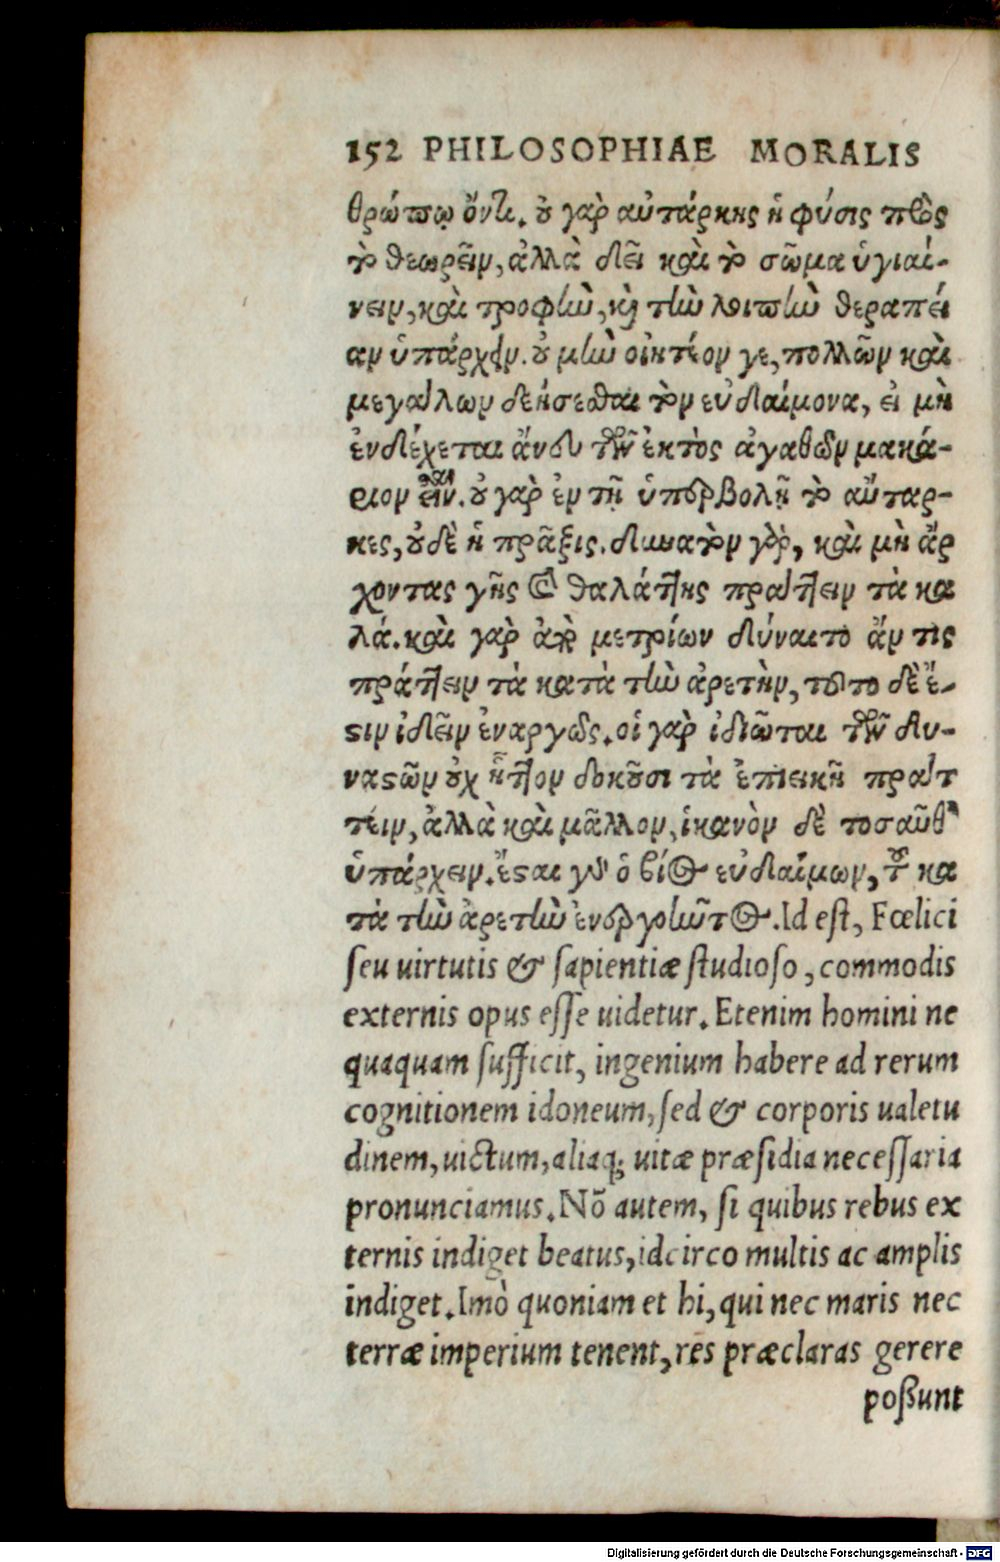 152 PHILOSOPHIAE MORALIS
θρώπῳ ὄντι. ȣ γὰρ αὐτάρκης ἡ φύσις πρὸς
τὸ θεωρεῖν, ἀλλὰ δεῖ καὶ τὸ σῶμα ὑγιαί-
νειν, καὶ τροφὴν, κὶ τὴν λοιπὴν θεραπεί
αν ὑπάρχειν. ȣ μὴν οἰκτέον γε, πολλῶν καὶ
μεγάλων δεήσεσθαι τὸν εὐδαίμονα, εἰ μὴ
ἐνδέχεται ἄνευ τῶν ἐκτὸς ἀγαθῶν μακά-
ριον εἶναι. ȣ γὰρ ἐν τῇ ὑπερβολῇ τὸ αὔταρ-
κες, ȣδὲ ἡ πρᾶξις. δυνατὸν γὰρ, καὶ μὴ ἄρ
χοντας γῆς & θαλάττης πράττειν τὰ κα
λά. καὶ γὰρ ἀπὸ μετρίων δύναιτο ἄν τις
πράττειν τὰ κατὰ τὴν ἀρετὴν, τȣτο δὲ ἔ-
ϛιν ἰδεῖν ἐναργῶς. οἱ γὰρ ἰδιῶται τῶν δυ-
ναϛῶν ȣχ ἧττον δοκȣσι τὰ ἐπιεικῆ πράτ
τειν, ἀλλὰ καὶ μᾶλλον, ἱκανὸν δὲ τοσαῦθ'
ὑπάρχειν. ἔϛαι γὰρ ὁ βίος εὐδαίμων, τȣ κα
τὰ τὴν ἀρετὴν ἐνεργȣντος. Id est, Fœlici
seu uirtutis & sapientiæ studioso, commodis
externis opus esse uidetur. Etenim homini ne
quaquam sufficit, ingenium habere ad rerum
cognitionem idoneum, sed & corporis ualetu
dinem, uictum, aliaq; uitæ præsidia necessaria
pronunciamus. Nõ autem, si quibus rebus ex
ternis indiget beatus, idcirco multis ac amplis
indiget. Imò quoniam et hi, qui nec maris nec
terræ imperium tenent, res præclaras gerere
poßunt
Digitalisierung gefördert durch die Deutsche Forschungsgemeinschaft - DFG